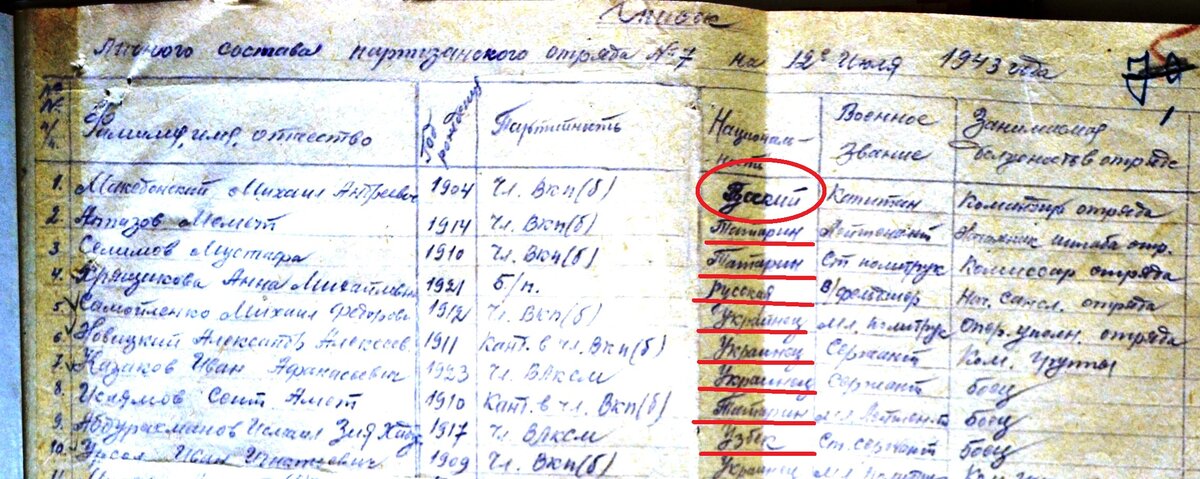 Список
личного состава партизанского отряда №7 на 12е Июля 1943 года
№№ п/п. Фамилия, имя, отчество Год рождения Партийность Националь- Военное Занимаемая
ность звание должность в отряде
1. Македонский Михаил Андреевич 1904 Чл. Вкп(б) Русский Капитан Командир отряда
2. Аппазов Мемет 1914 Чл. Вкп(б) Татарин Лейтенант Начальник штаба отр.
3. Селимов Мустафа 1910 Чл. Вкп(б) Татарин Ст политрук Комиссар отряда
4. Анна Михайловна 1921 Б/п. Русская В/фельдшер Нач. отряда
5. Самойленко Михаил Федоров 1912 Чл. Вкп(б) Украинец мл. политрук Опер. уполн. отряда
6. Новицкий Александр Алексеев 1911 Канд. в чл. Вкп(б) Украинец Сержант Ком. группы
7. Казаков Иван Афанасьевич 1923 Чл. Влксм Украинец Сержант боец
8. Ислямов Сеит Амет 1910 Канд. в чл. Вкп(б) Татарин мл лейтен-т боец
9. Абдурахманов Исмаил 1917 Чл. Влксм Узбек Ст. сержант боец
10. Урсол Иван Игнатеевич 1909 Чл. Вкп(б) Украинец мл политрук
11.